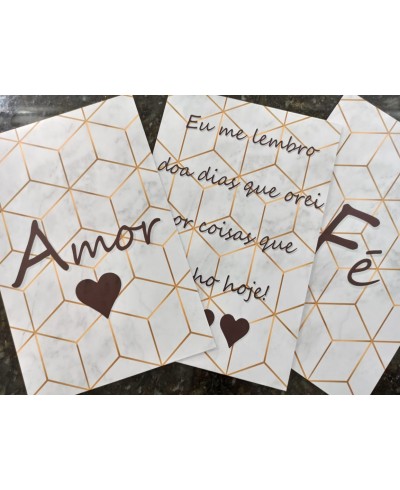 Amor
Eu me lembro
doa dias que orei
or coisas que
ho hoje!
Fé